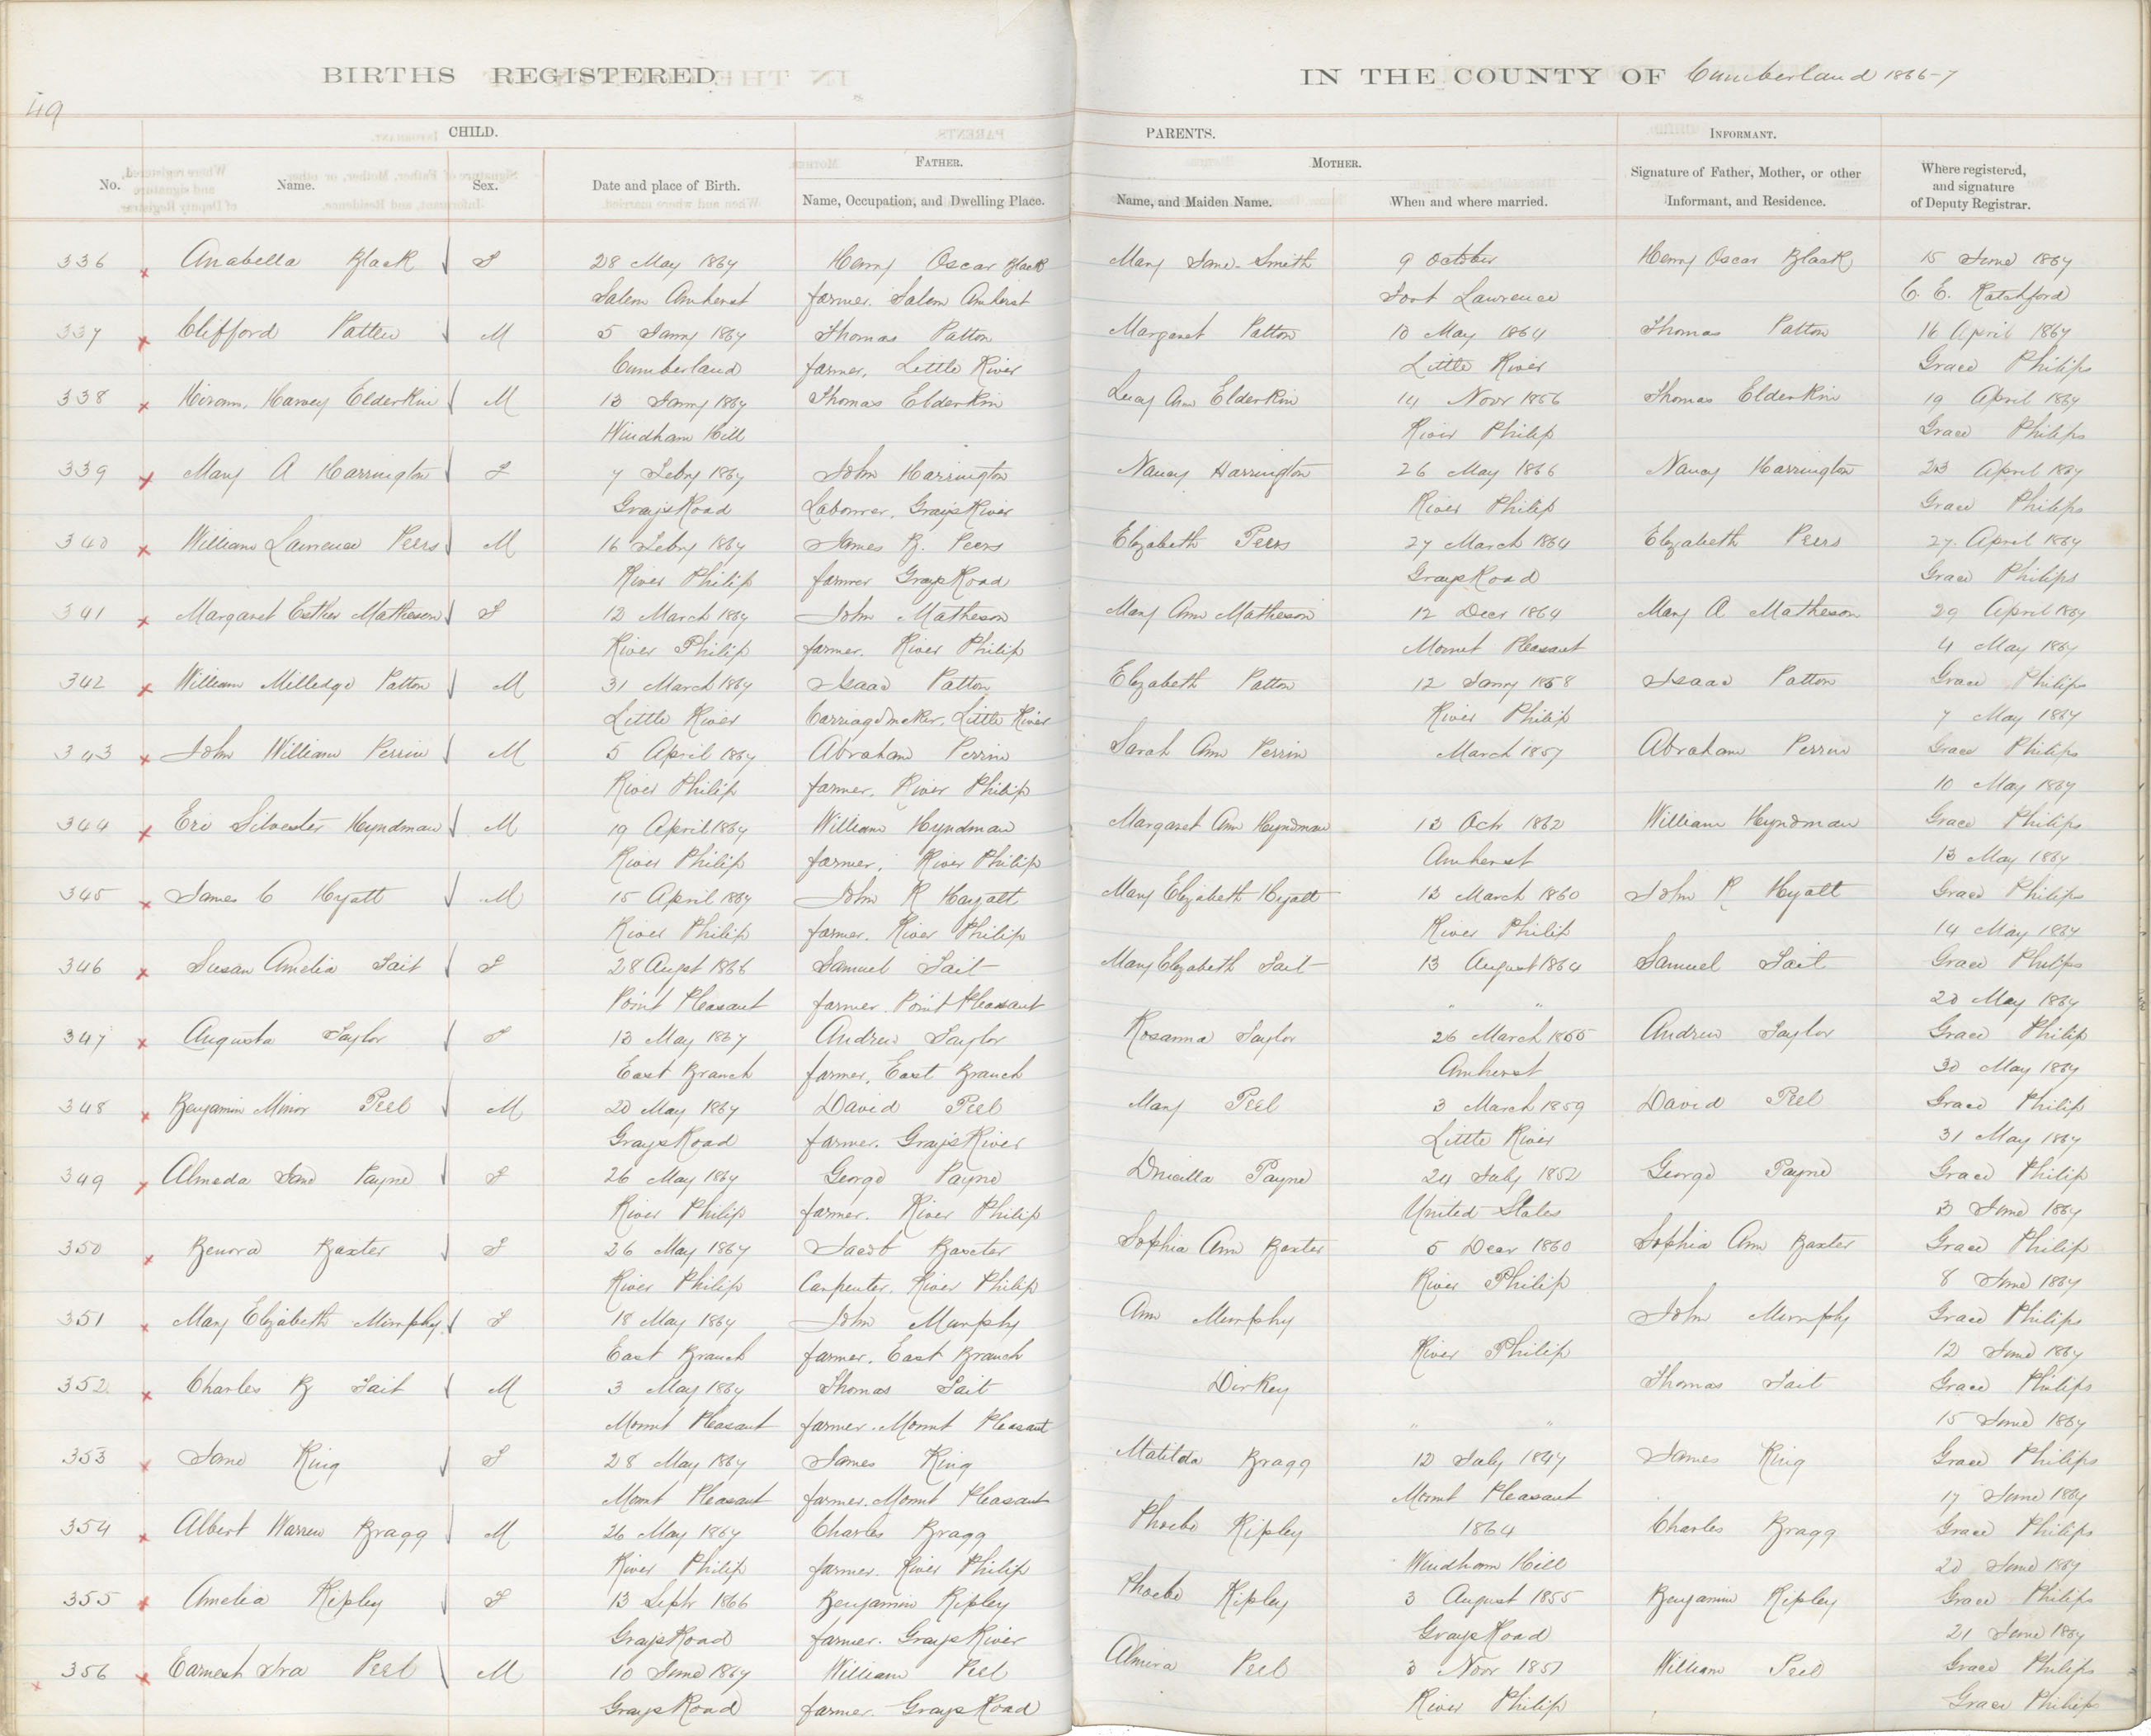 BIRTHS REGISTERED
IN THE COUNTY OF Cumberland 1866-7
49
CHILD.
PARENTS.
INFORMANT.
FATHER.
MOTHER.
No.
Name.
Sex.
Date and place of Birth.
Name, Occupation, and Dwelling Place.
Name, and Maiden Name.
When and where married.
Signature of Father, Mother, or other Informant, and Residence.
Where registered, and signature of Deputy Registrar.
336 Anabella Black F 28 May 1867 Henry Oscar Black Mary Jane Smith 9 October Henry Oscar Black 15 June 1867
Salem Amherst farmer. Salem Amherst Fort Lawrence C. E. Ratchford
337 Clifford Patten M 5 Jany 1867 Thomas Patton Margaret Patton 10 May 1864 Thomas Patton 16 April 1867
Cumberland farmer, Little River Little River Grace Philips
338 Hiram, Harvey Elderkin M 13 Jany 1867 Thomas Elderkin Lucy Ann Elderkin 14 Novr 1856 Thomas Elderkin 19 April 1867
Windham Hill River Philip Grace Philips
339 Mary A Harrington F 7 Feby 1867 John Harrington Nancy Harrington 26 May 1866 Nancy Harrington 23 April 1867
Grays Road Labourer, Grays River River Philip Grace Philips
340 William Lawrence Peers M 16 Feby 1867 James B. Peers Elizabeth Peers 27 March 1864 Elizabeth Peers 27. April 1867
River Philip farmer Grays Road Grays Road Grace Philips
341 Margaret Esther Matheson F 12 March 1867 John Matheson Mary Ann Matheson 12 Decr 1864 Mary A Matheson 29 April 1867
River Philip farmer. River Philip Mount Pleasant 4 May 1867
342 William Milledge Patton M 31 March 1867 Isaac Patton Elizabeth Patton 12 Jany 1858 Isaac Patton Grace Philips
Little River Carriage maker, Little River River Philip 7 May 1867
343 John William Perrin M 5 April 1867 Abraham Perrin Sarah Ann Perrin March 1857 Abraham Perrin Grace Philips
River Philip farmer, River Philip 10 May 1867
344 Eri Silvester Hyndman M 19 April 1867 William Hyndman Margaret Ann Hyndman 13 Octr 1862 William Hyndman Grace Philips
River Philip farmer, River Philip Amherst 13 May 1867
345 James C Hyatt M 15 April 1867 John R Hayatt Mary Elizabeth Hyatt 12 March 1860 John R Hyatt Grace Philips
River Philip farmer. River Philip River Philip 14 May 1867
346 Susan Amelia Tait F 28 Augst 1866 Samuel Tait Mary Elizabeth Tait 13 August 1864 Samuel Tait Grace Philips
Point Pleasant farmer. Point Pleasant " " 20 May 1867
347 Augusta Taylor F 12 May 1867 Andrew Taylor Rosanna Taylor 26 March 1855 Andrew Taylor Grace Philip
East Branch farmer, East Branch Amherst 30 May 1867
348 Benjamin Minor Peel M 20 May 1867 David Peel Mary Peel 3 March 1859 David Peel Grace Philip
Grays Road farmer. Grays River Little River 31 May 1867
349 Almeda Jane Payne F 26 May 1867 George Payne Drucilla Payne 24 July 1852 George Payne Grace Philip
River Philip farmer. River Philip United States 3 June 1867
350 Benora Baxter F 26 May 1867 Jacob Baxter Sophia Ann Baxter 5 Decr 1860 Sophia Ann Baxter Grace Philip
River Philip Carpenter. River Philip River Philip 8 June 1867
351 Mary Elizabeth Murphy F 18 May 1867 John Murphy Ann Murphy John Murphy Grace Philips
East Branch farmer. East Branch River Philip 12 June 1867
352 Charles B Tait M 3 May 1867 Thomas Tait Dirkey Thomas Tait Grace Philips
Mount Pleasant farmer. Mount Pleasant " " 15 June 1867
353 Jane King F 28 May 1867 James King Matilda Bragg 12 July 1847 James King Grace Philips
Mount Pleasant farmer. Mount Pleasant Mount Pleasant 17 June 1867
354 Albert Warren Bragg M 26 May 1867 Charles Bragg Phoebe Ripley 1864 Charles Bragg Grace Philips
River Philip farmer. River Philip Windham Hill 20 June 1867
355 Amelia Ripley F 13 Septr 1866 Benjamin Ripley Phoebe Ripley 3 August 1855 Benjamin Ripley Grace Philips
Grays Road farmer. Grays River Grays Road 21 June 1867
356 Earnest Ira Peel M 10 June 1867 William Peel Almira Peel 3 Novr 1857 William Peel Grace Philips
Grays Road farmer. Grays Road River Philip Grace Philips